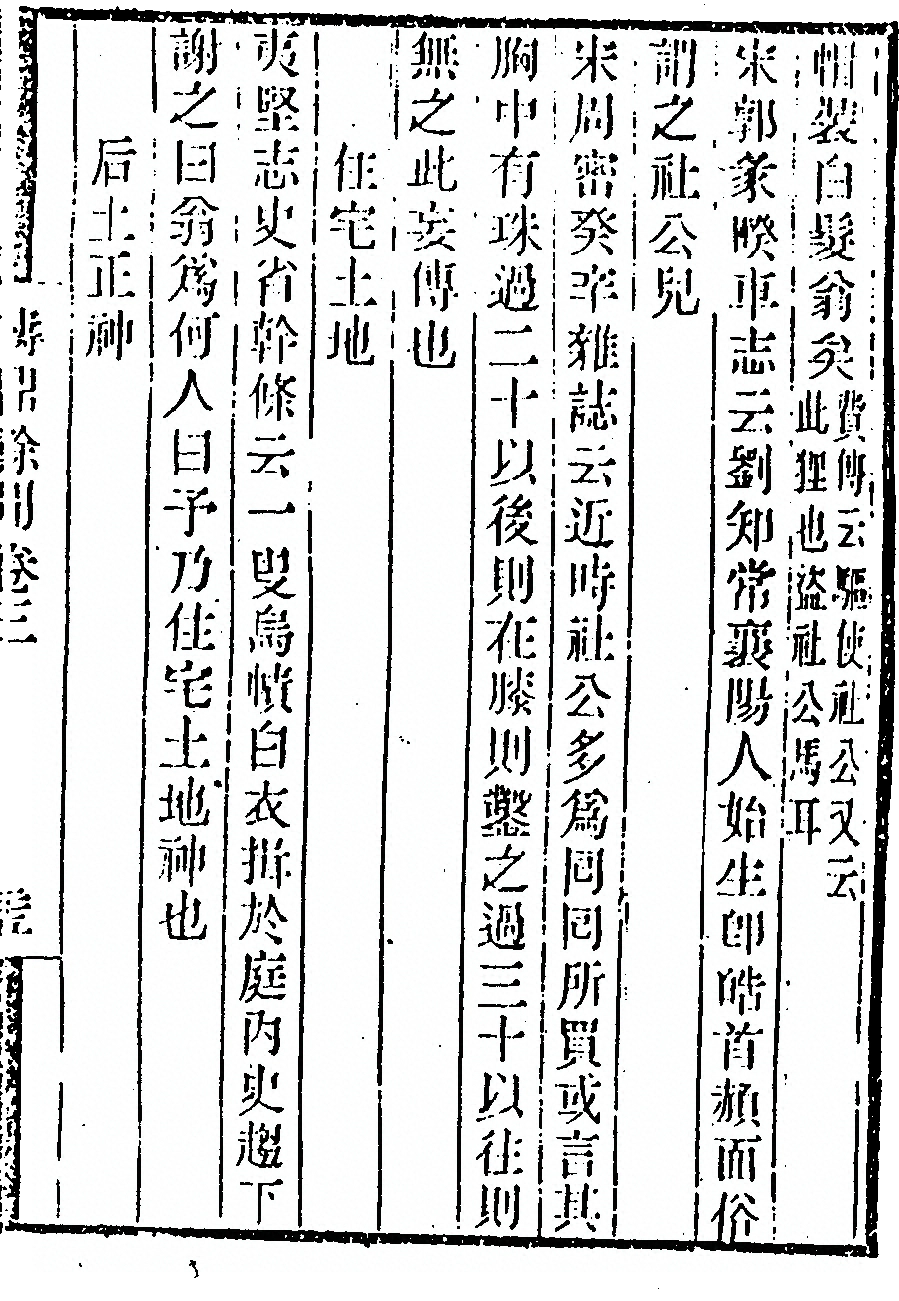 帽裝白髮翁矣費傳云驅使社公又云
此狸也盜社公馬耳
宋郭彖睽車志云劉知常襄陽人始生卽皓首頳面俗
謂之社公兒
宋周密癸辛雜誌云近時社公多爲囘囘所買或言其
胸中有珠過二十以後則在膝則鑿之過三十以往則
無之此妄傳也
住宅土地
夷堅志史省幹條云一叟烏幘白衣揖於庭內史趨下
謝之曰翁爲何人曰予乃住宅土地神也
后土正神
卷三